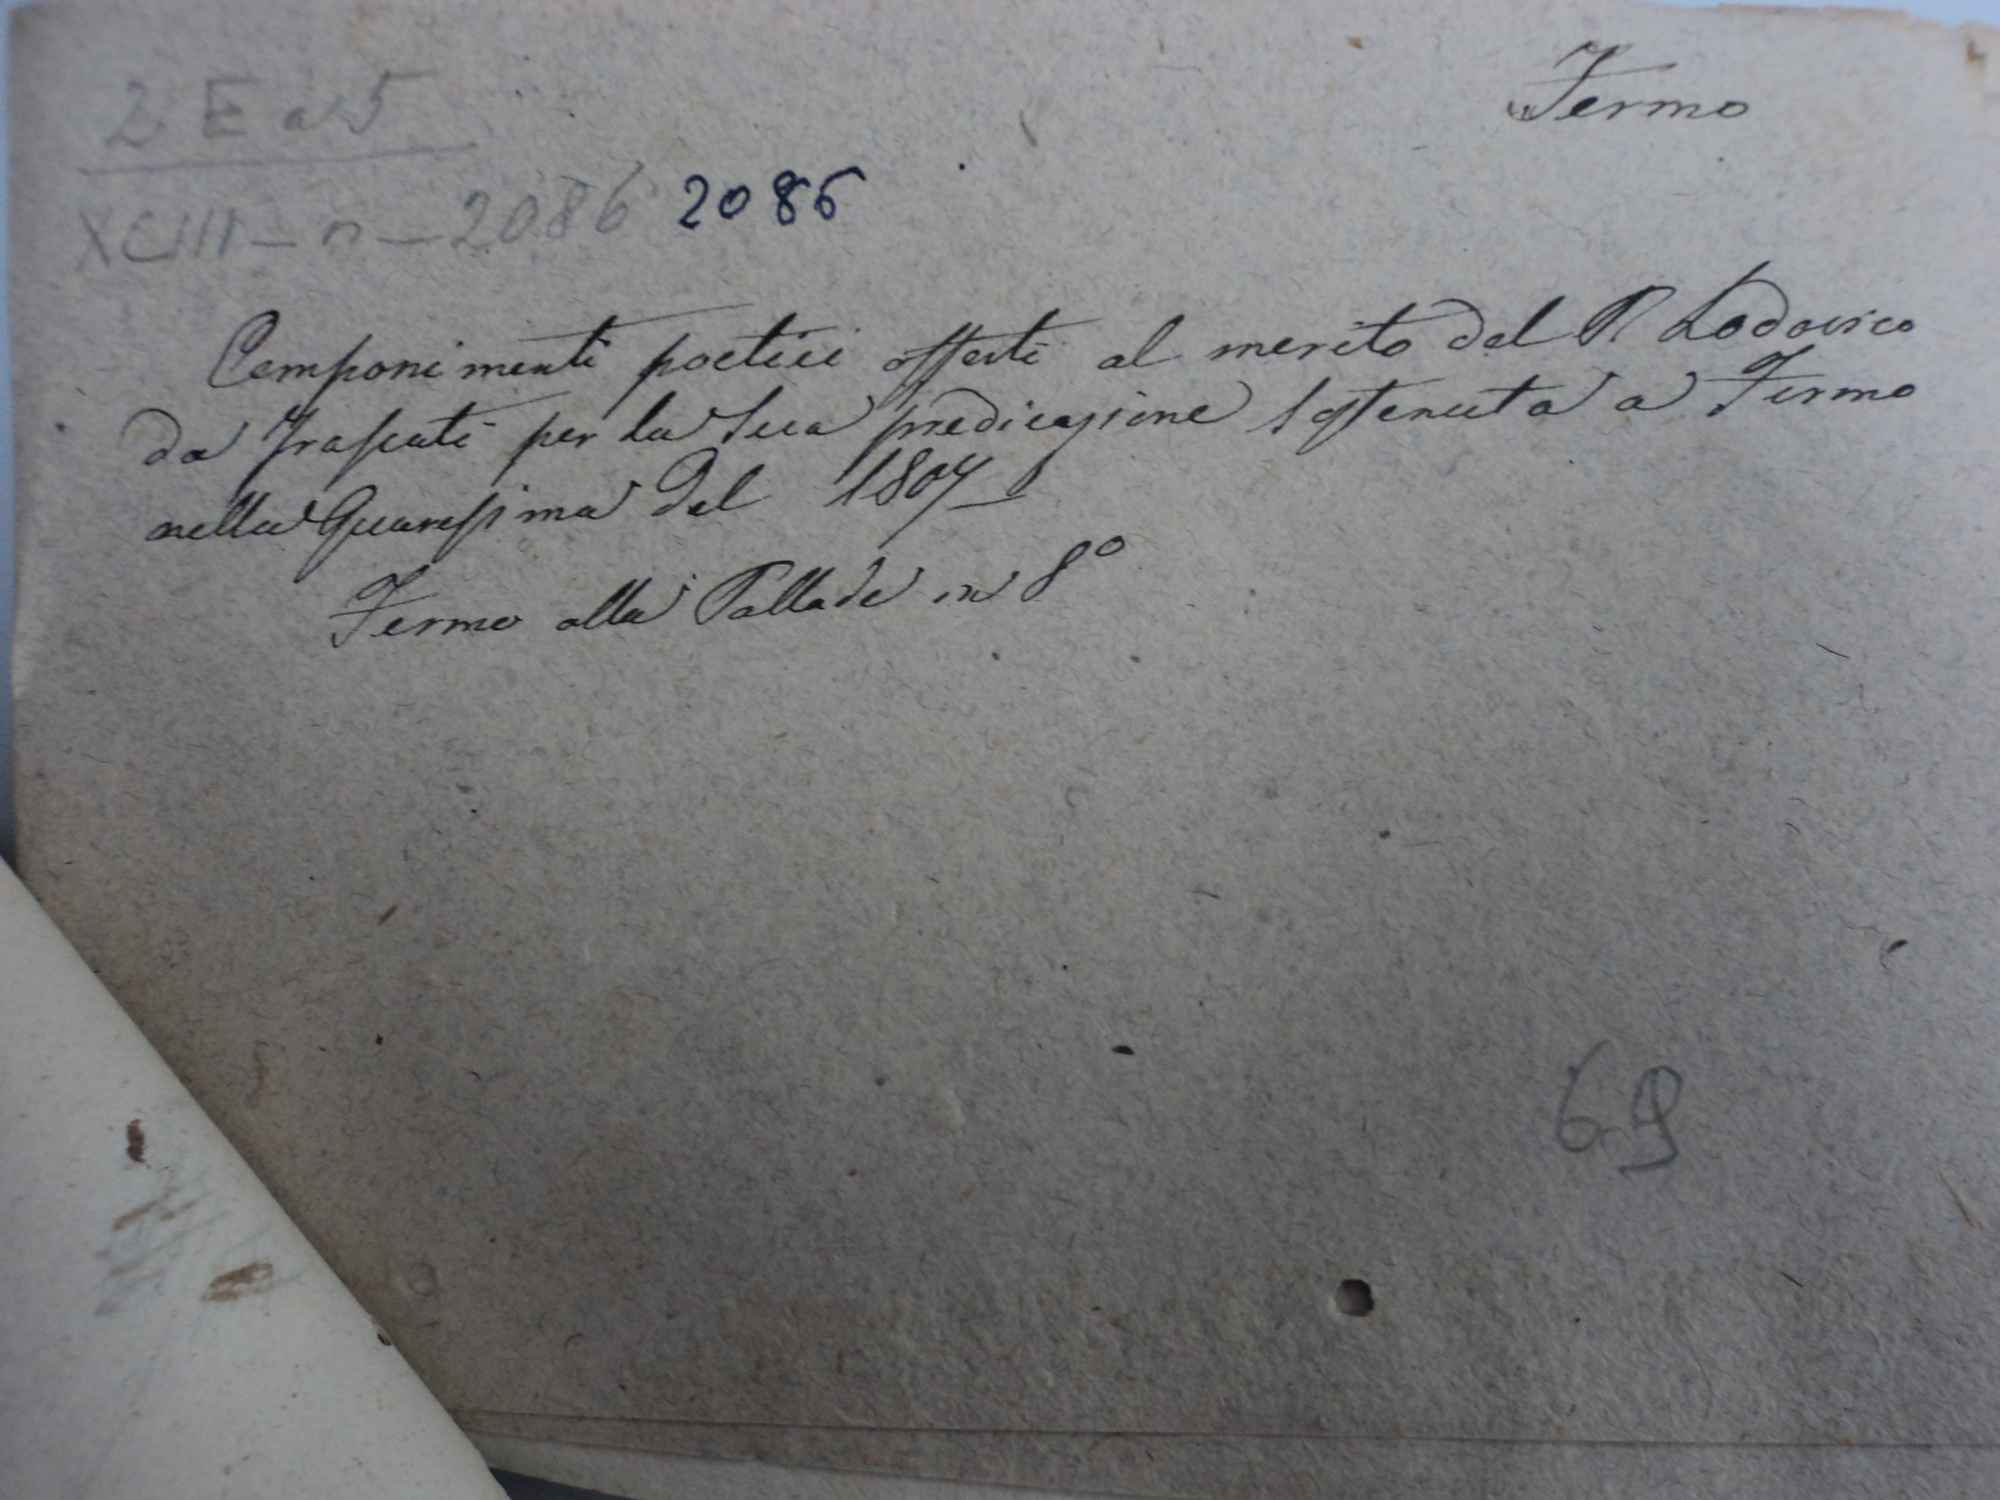 Fermo
2 E a 5
XCIII - n - 2086 2086
Componimenti poetici offerti al merito del P. Lodovico
da Frascati per la sua predicazione sostenuta a Fermo
nella Quaresima del 1807
Fermo alla Pallade in 8°
69